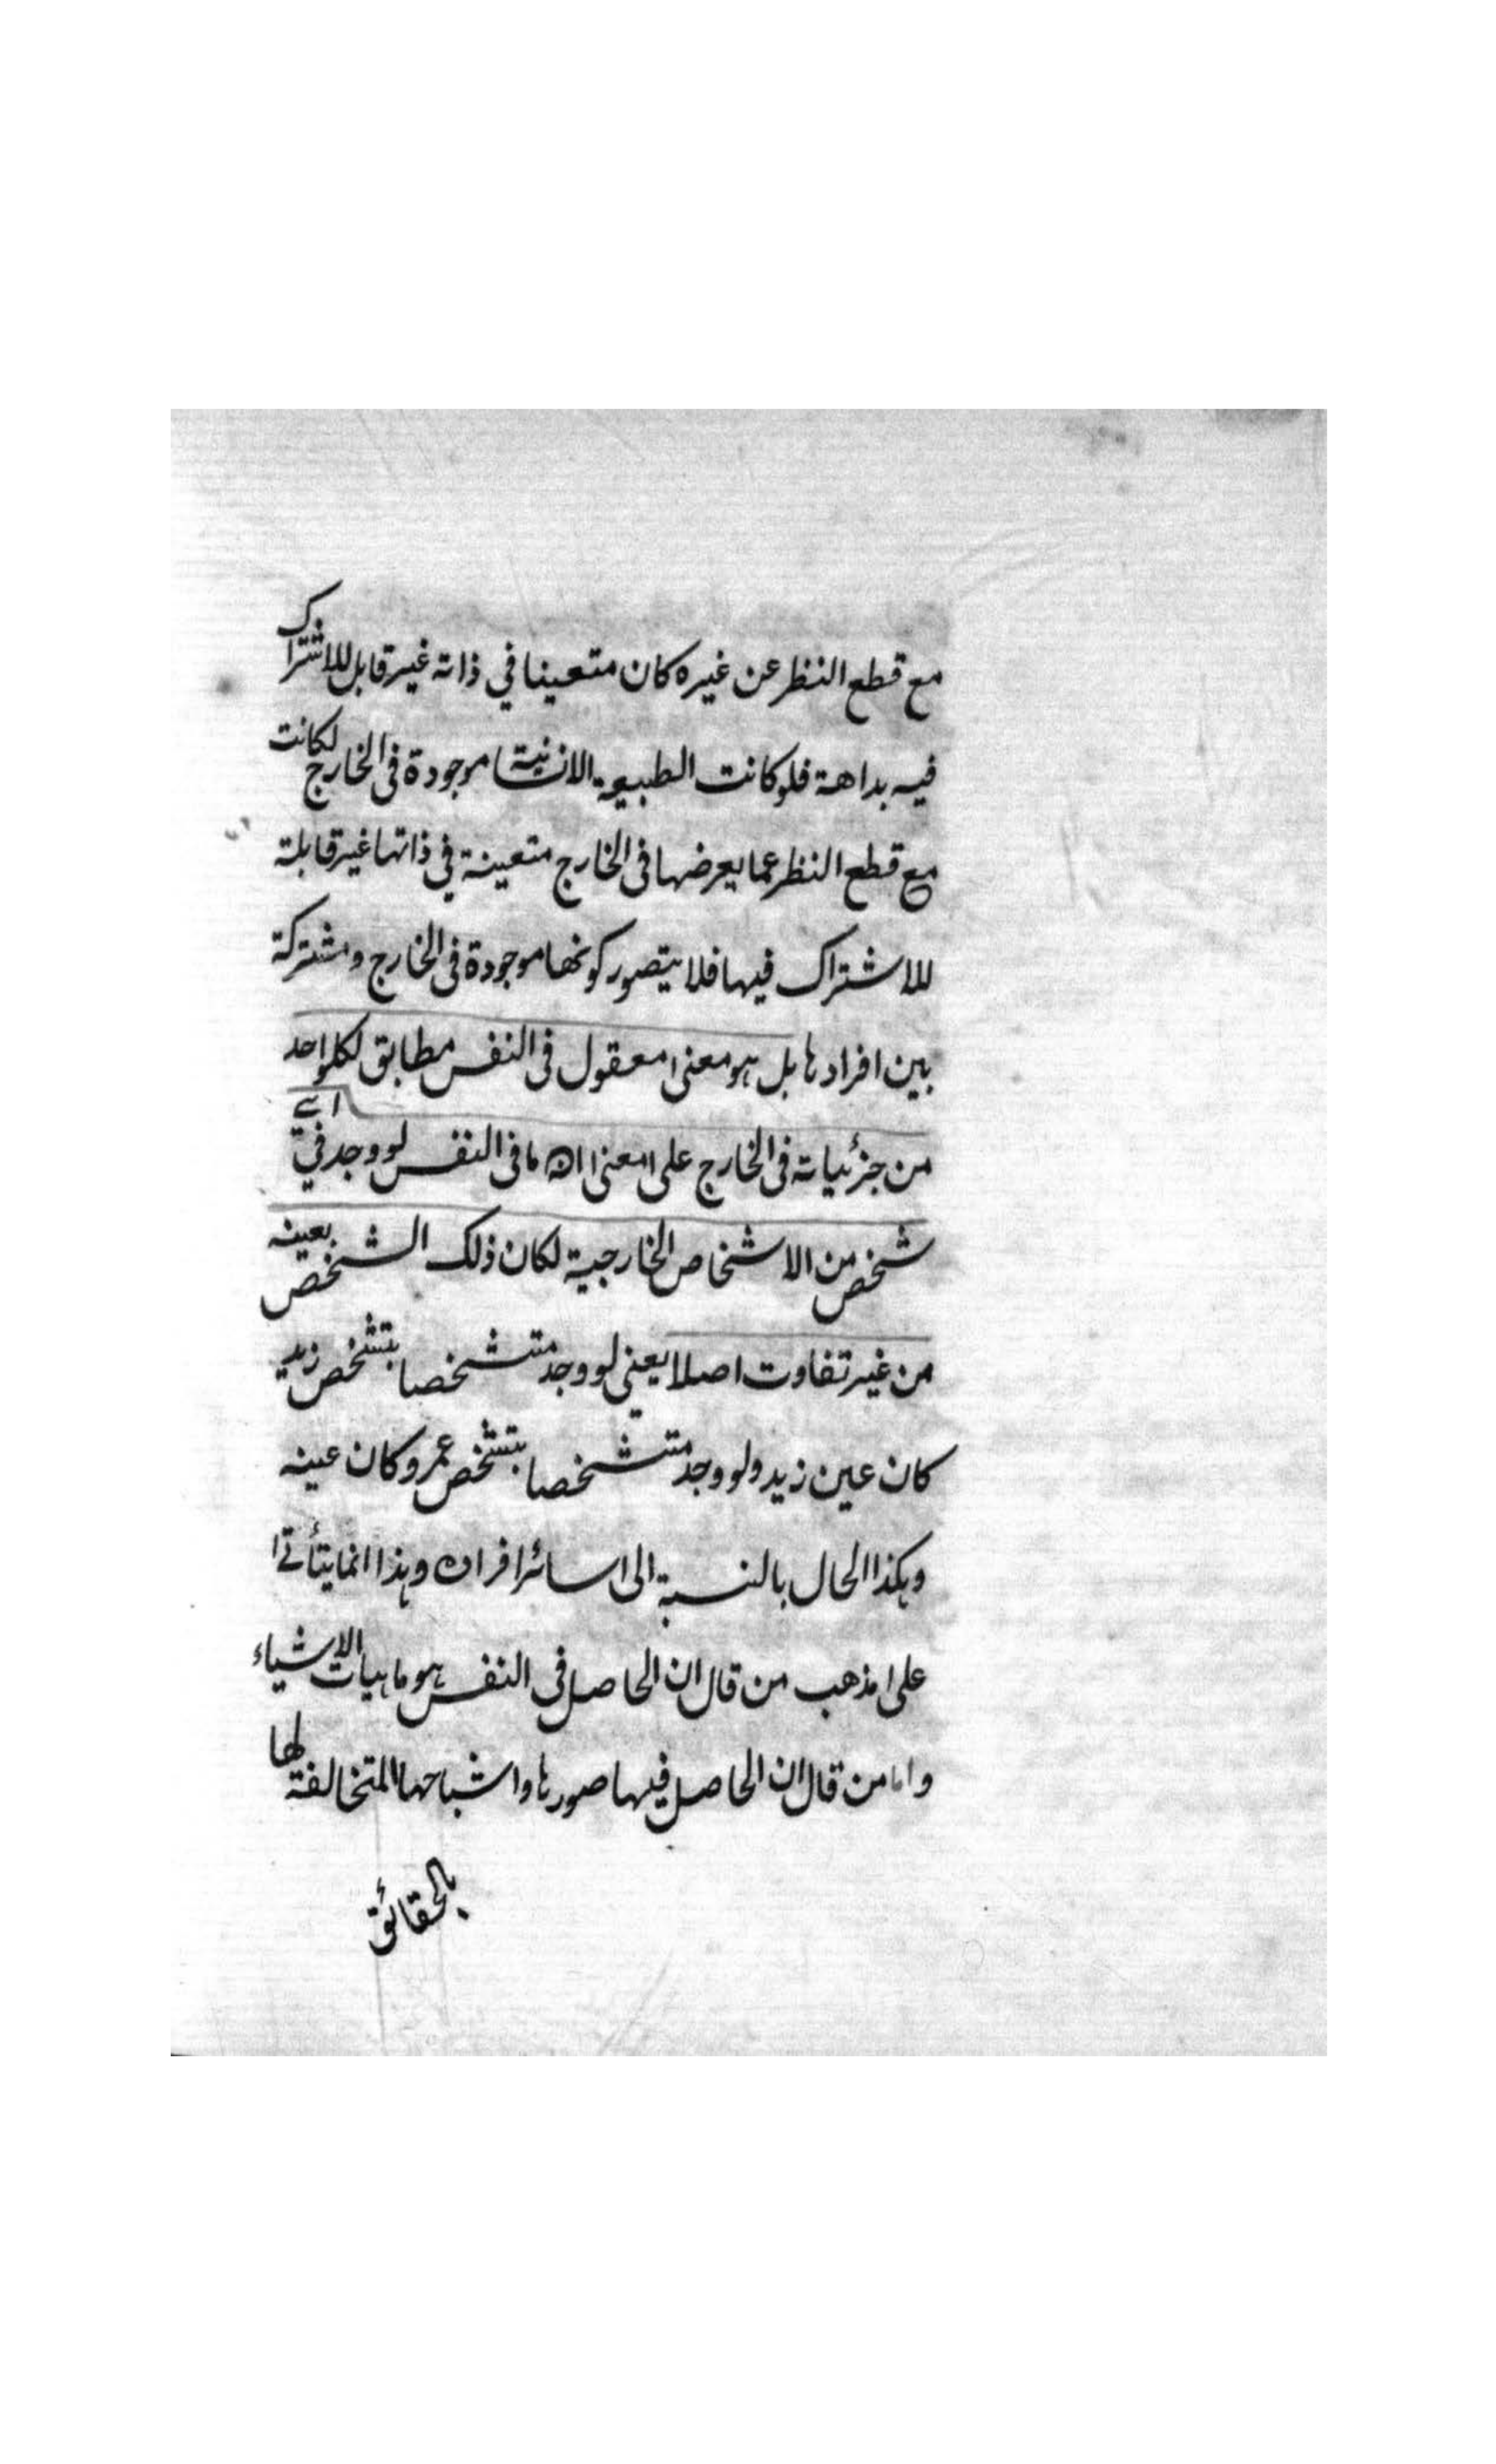 مع قطع النظر عن غيره كان متعينا في ذاته غير قابل للاشتراك
فيه بداهة فلو كانت الطبيعة الانسانية موجودة في الخارج لكانت
مع قطع النظر عما يعرضها في الخارج متعينة في ذاتها غير قابلة
للاشتراك فيها فلا يتصور كونها موجودة في الخارج ومشتركة
بين افرادها بل هو معنى معقول في النفس مطابق لكل واحد
من جزئياته في الخارج على معنى ان ما في النفس لو وجد في اي
شخص من الاشخاص الخارجية لكان ذلك الشخص بعينه
من غير تفاوت اصلا يعني لو وجد متشخصا بتشخص زيد
كان عين زيد ولو وجد متشخصا بتشخص عمرو كان عينه
وهكذا الحال بالنسبة الى سائر افراده وهذا انما يتأتى
على مذهب من قال ان الحاصل في النفس هو ماهيات الاشياء
واما من قال ان الحاصل فيها صورها واشباحها المتخالفة لها
بالحقائق